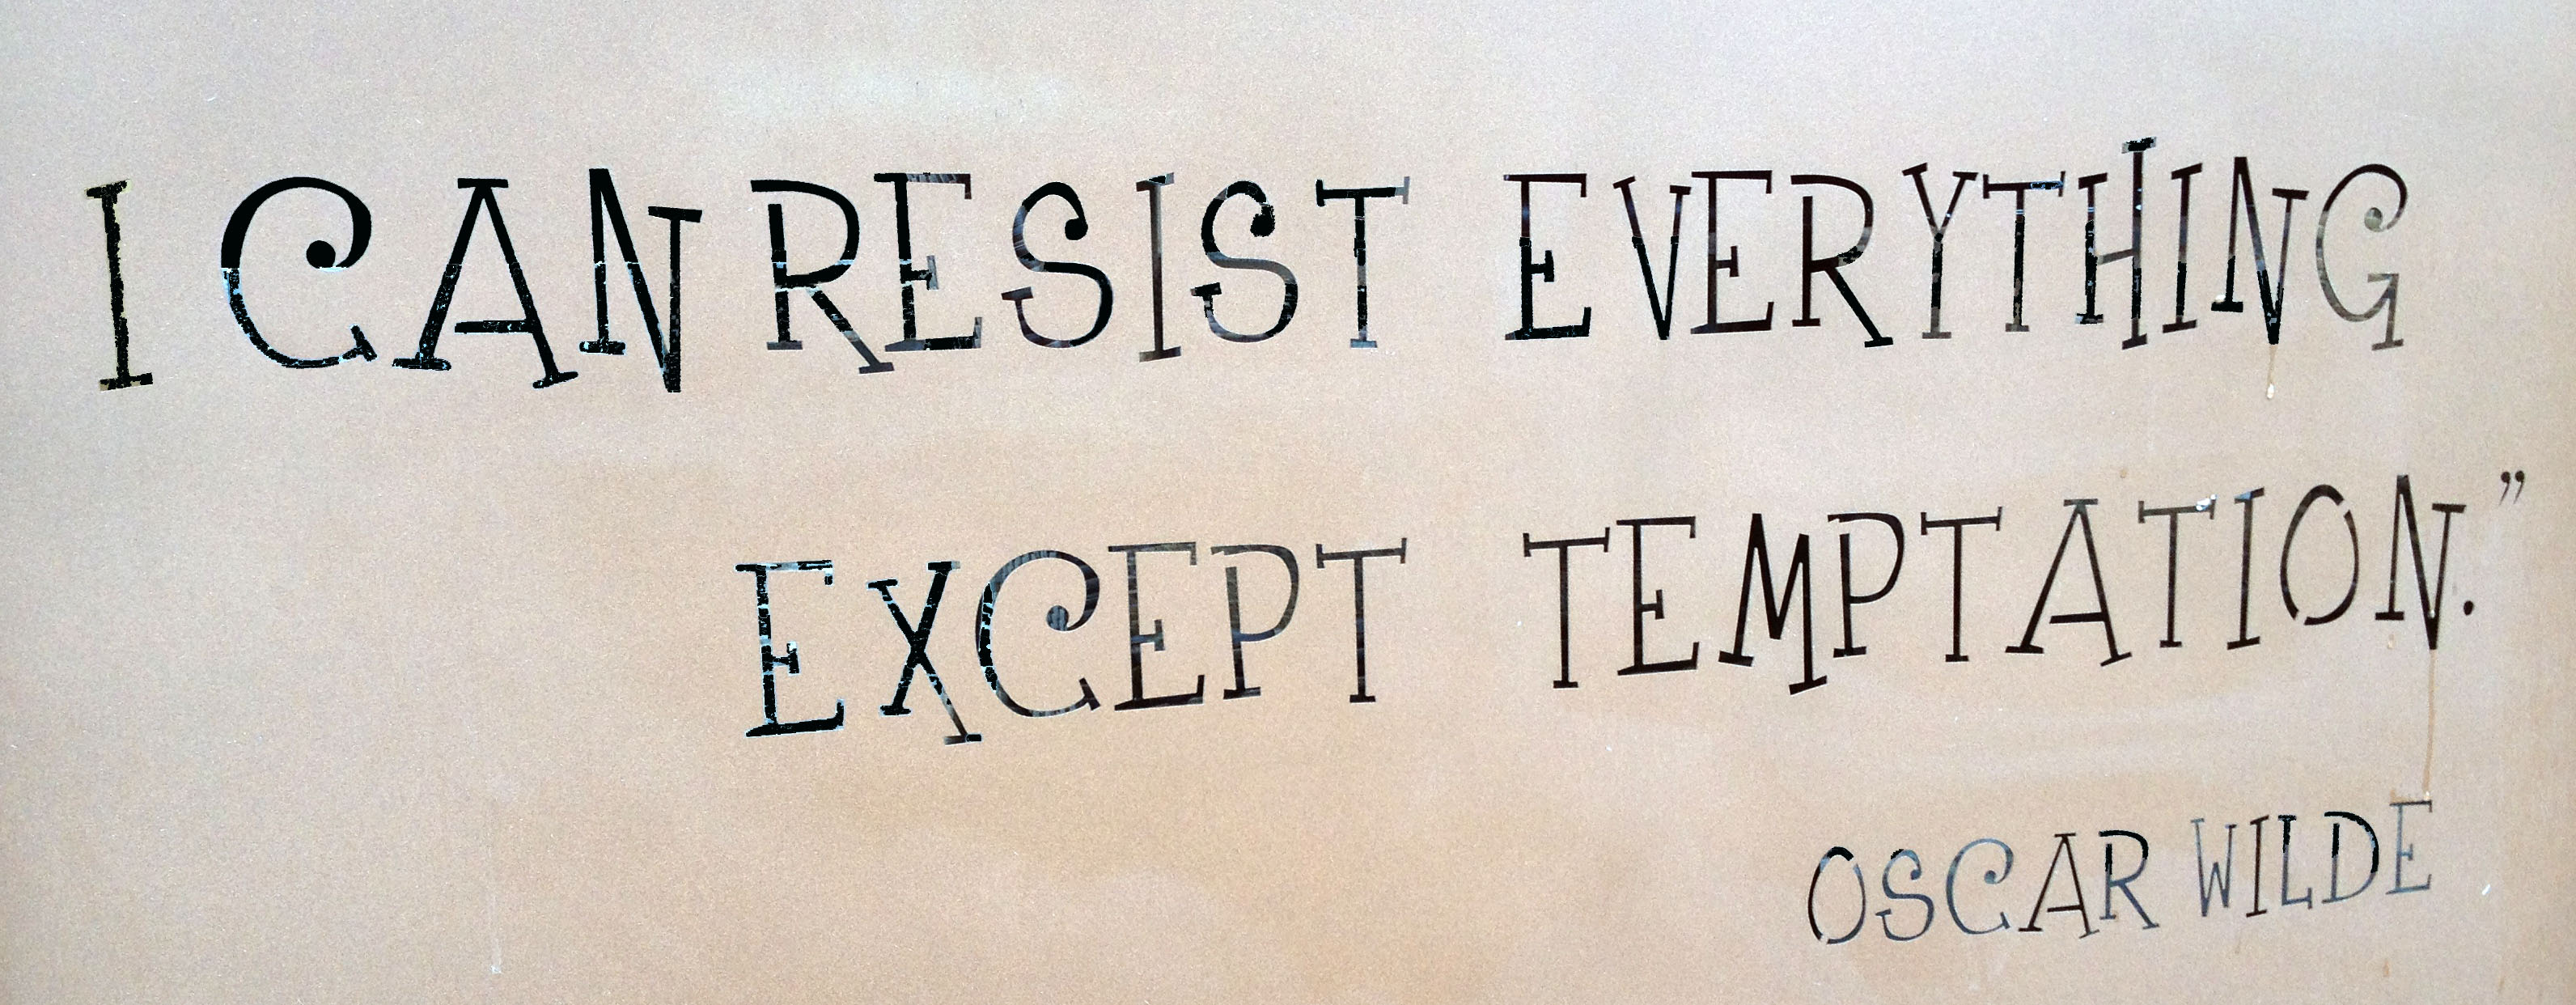 I CAN RESIST EVERYTHING
EXCEPT TEMPTATION.”
OSCAR WILDE